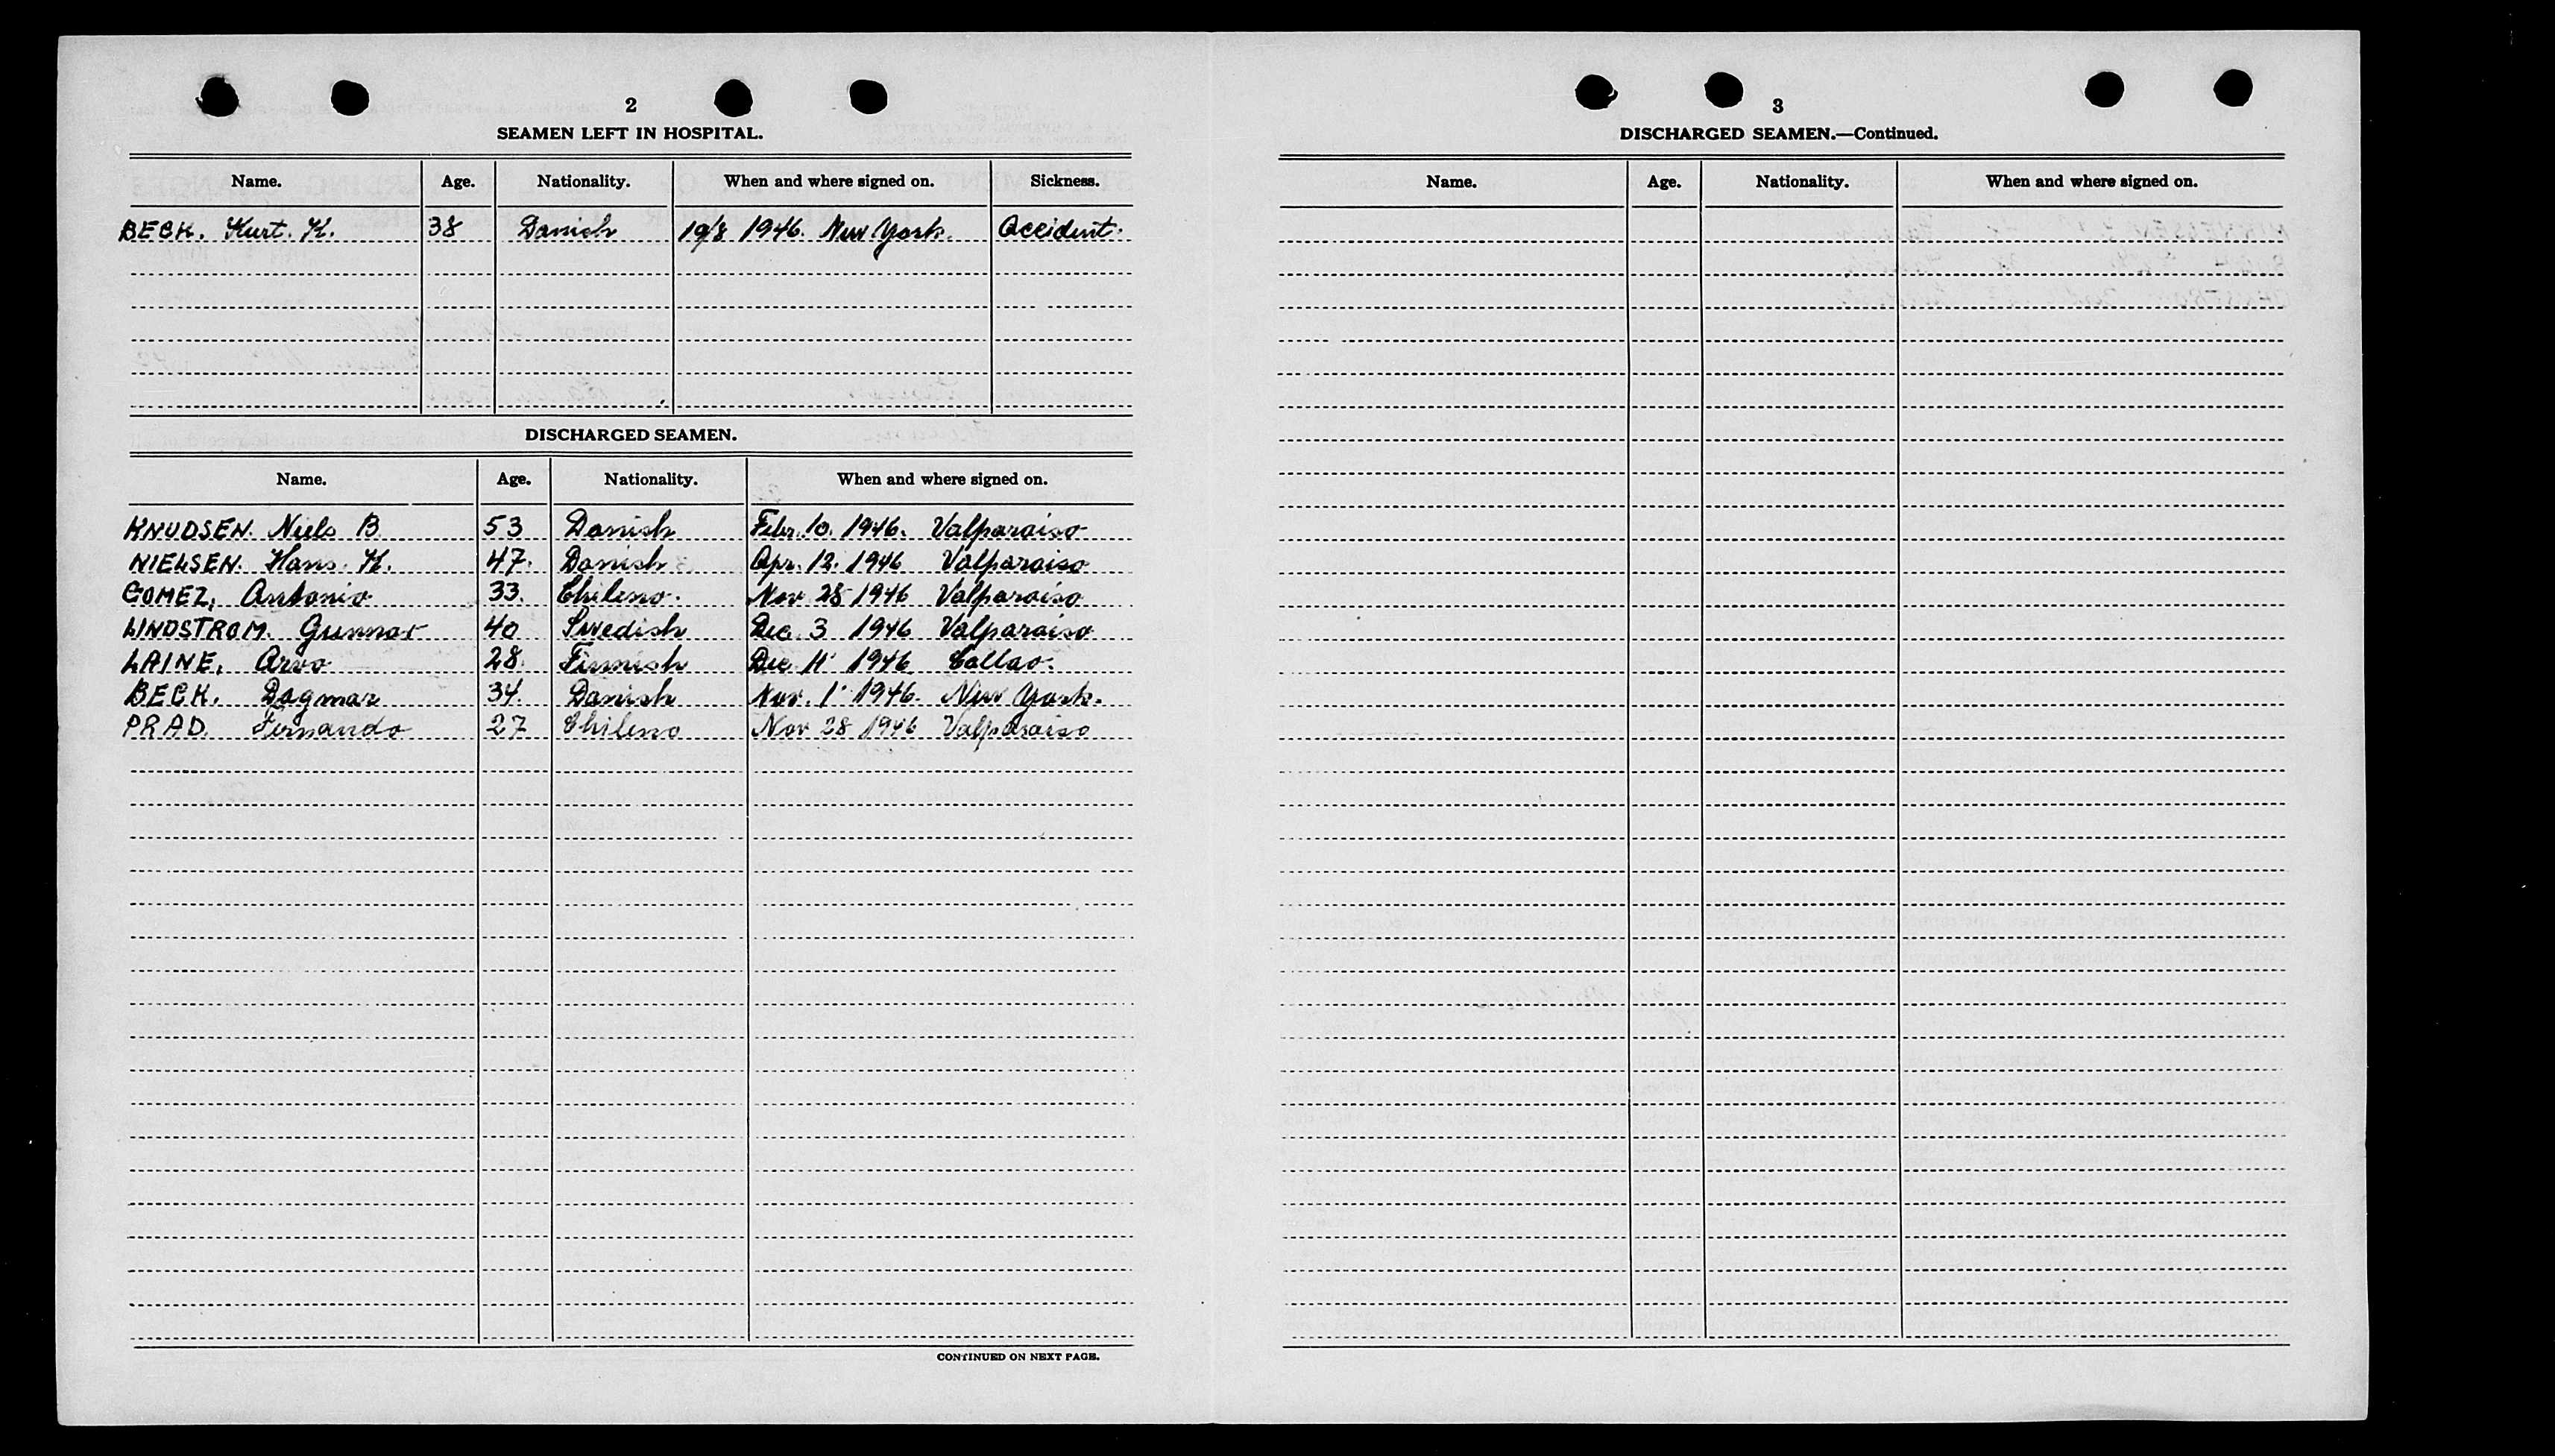 2
SEAMEN LEFT IN HOSPITAL.
Name. Age. Nationality. When and where signed on. Sickness.
BECK. Kurt. K. 38 Danish 19/8 1946. New York. Accident.
DISCHARGED SEAMEN.
Name. Age. Nationality. When and where signed on.
KNUDSEN. Niels B. 53 Danish Febr. 10. 1946. Valparaiso
NIELSEN. Hans. K. 47. Danish Apr. 12. 1946 Valparaiso
GOMEZ, Antonio 33. Chileno. Nov 28 1946 Valparaiso
LINDSTROM. Gunnar 40 Swedish Dec. 3 1946 Valparaiso
LAINE, Arvo 28. Finnish Dec 11 1946 Callao.
BECK. Dagmar 34. Danish Nov. 1 1946. New York.
PRAD. Fernando 27 Chileno Nov 28 1946 Valparaiso
CONTINUED ON NEXT PAGE.
3
DISCHARGED SEAMEN.—Continued.
Name. Age. Nationality. When and where signed on.